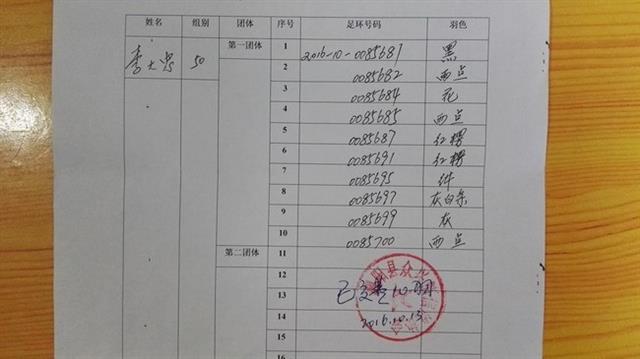 姓名 组别 团体 序号 足环号码 羽色
李大忠 50 第一团体 1 2016-10-0085681 黑
2 0085682 雨点
3 0085684 花
4 0085685 雨点
5 0085687 红楞
6 0085691 红楞
7 0085695 绛
8 0085697 灰白条
9 0085699 灰
10 0085700 雨点
第二团体 11
12
13
14
15
16
阳县众
已交 10羽
2016.10.13